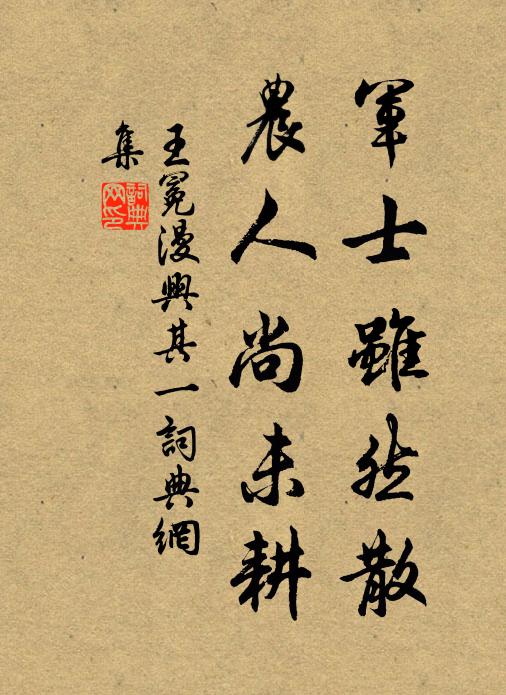 軍士雖然散
農人尚未耕
王冕漫興其一詞典網
集
詞典
网印